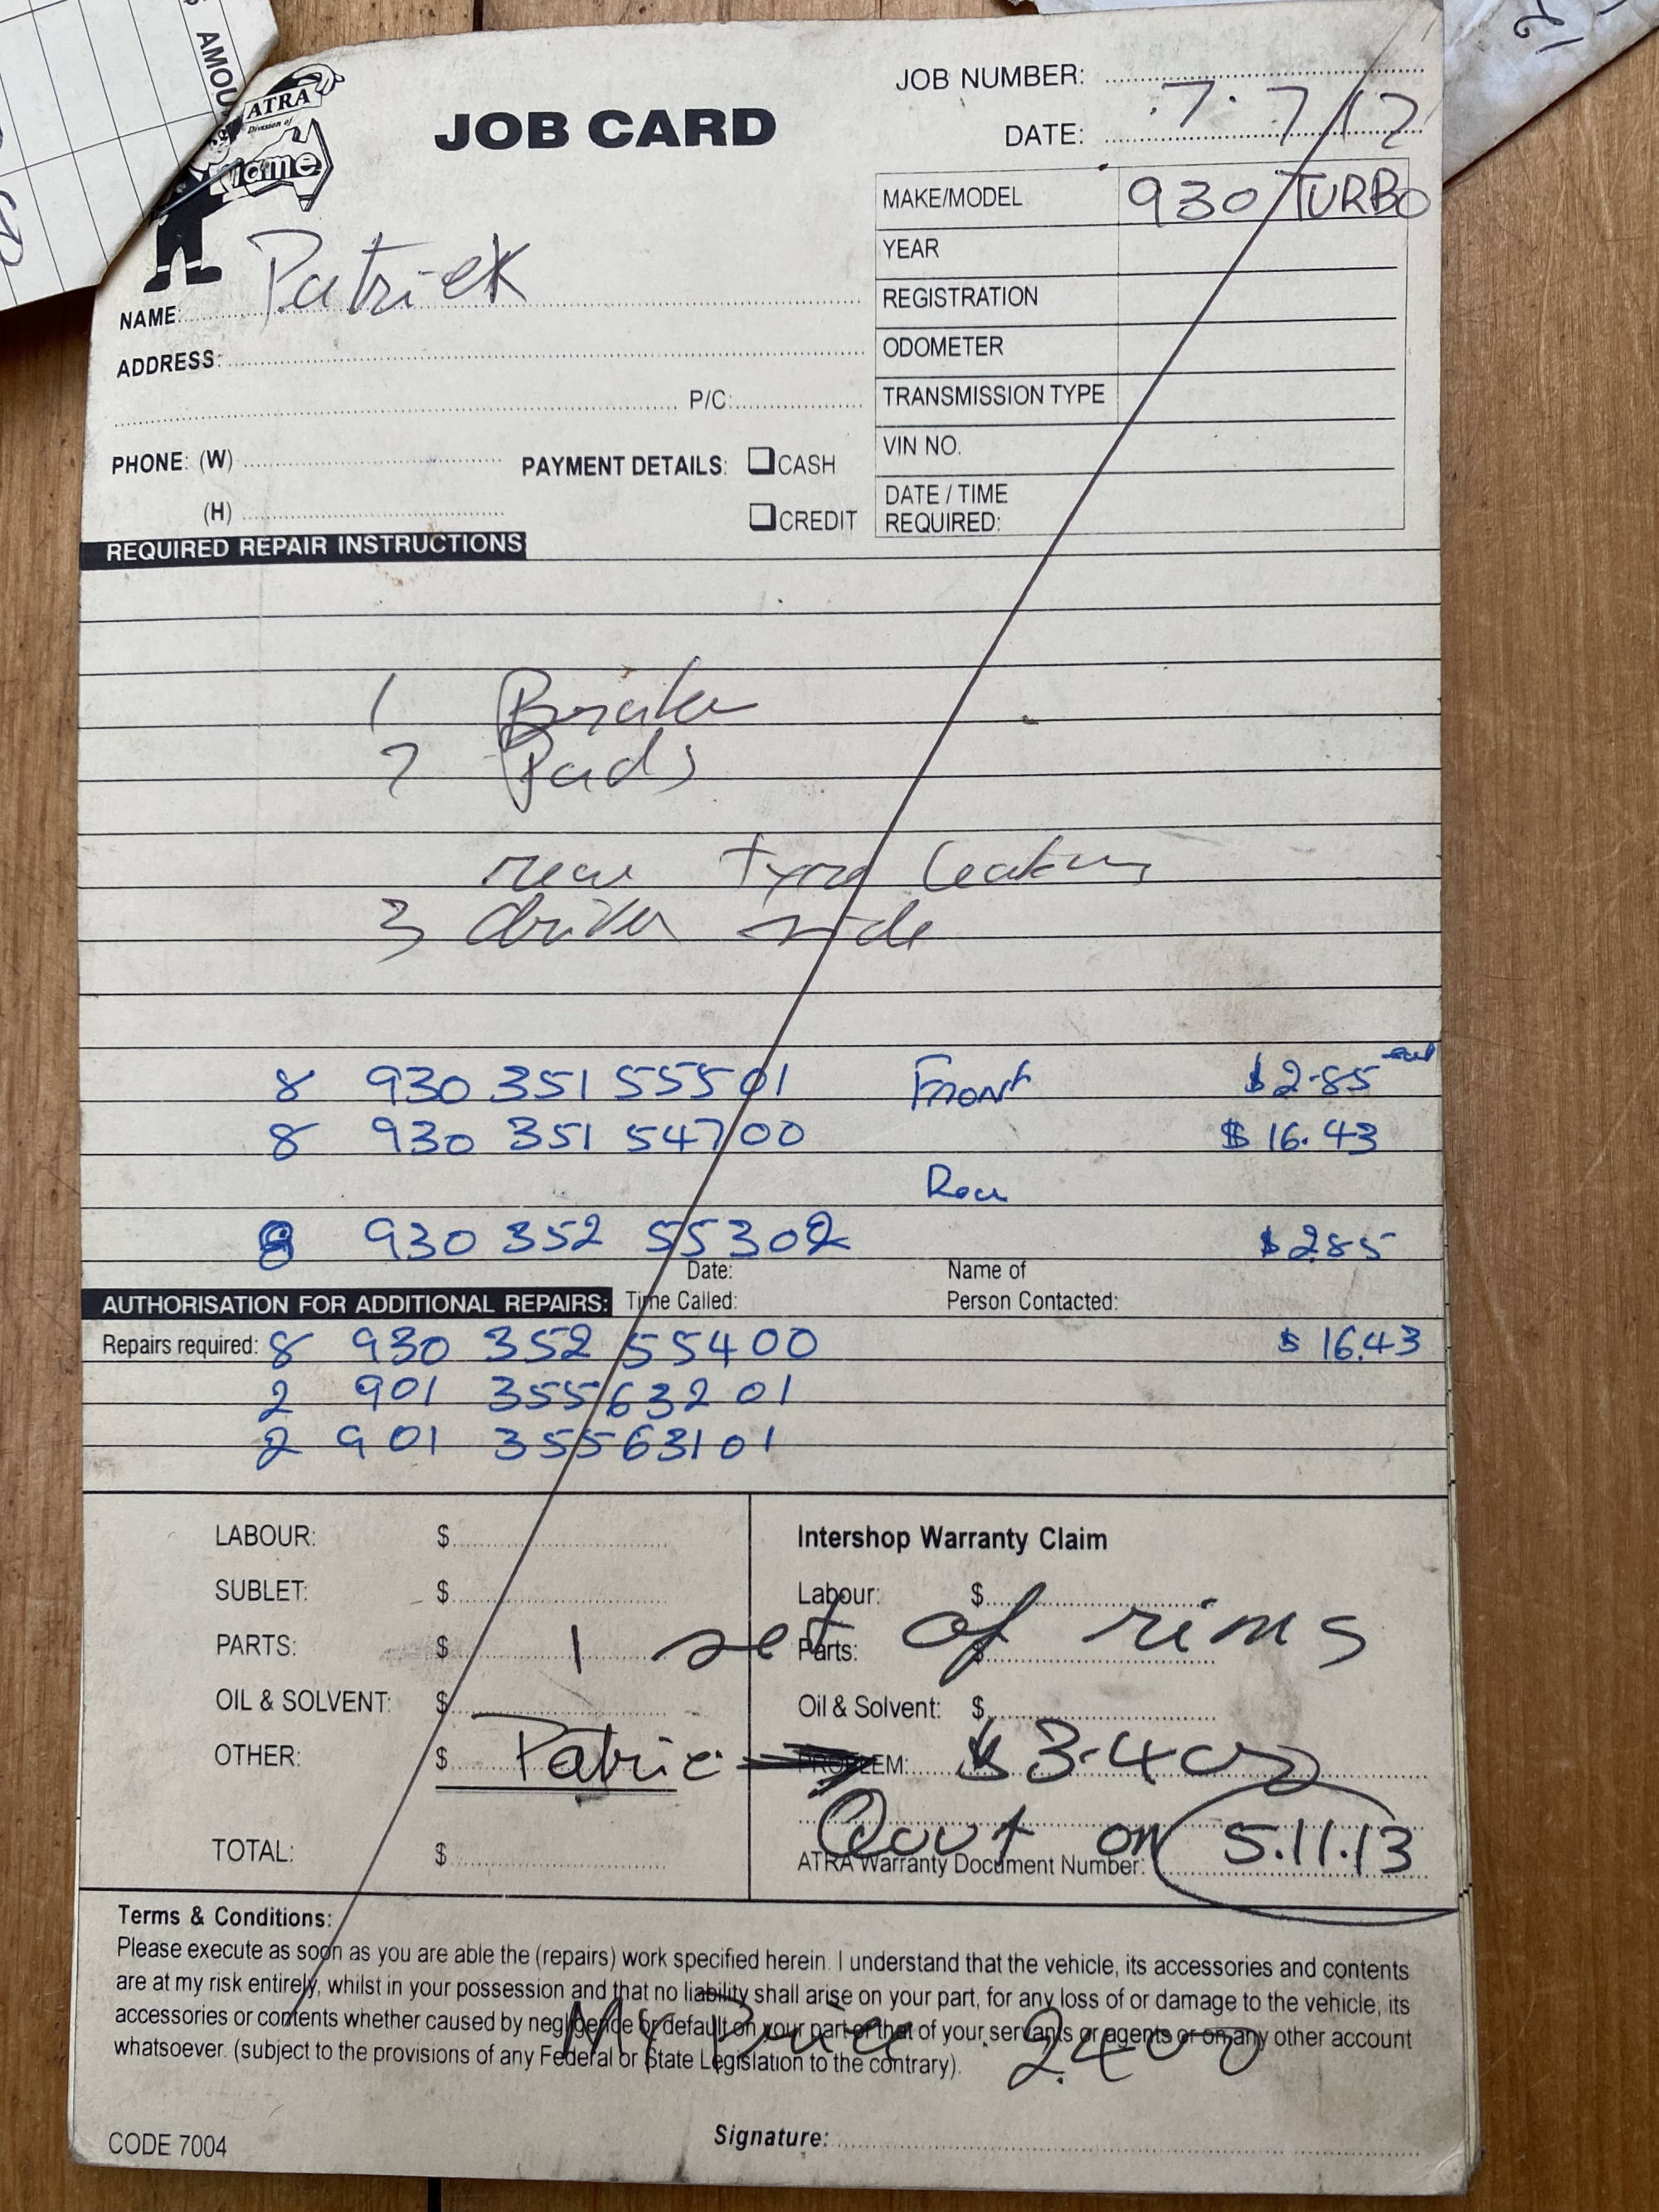 AMOU
ATRA
Division of
JOB CARD
JOB NUMBER:
DATE: 7.7/12
MAKE/MODEL 930 TURBO
YEAR
REGISTRATION
ODOMETER
TRANSMISSION TYPE
VIN NO.
DATE / TIME
REQUIRED:
NAME: Patrick
ADDRESS:
P/C:
PHONE: (W) PAYMENT DETAILS: CASH
(H) CREDIT
REQUIRED REPAIR INSTRUCTIONS
1 Brake
2 Pads
rear tyre leaking
3 driver side
8 930 351 55501 Front $2.85
8 930 351 54700 $16.43
Rear
8 930 352 55302 $2.85
Date: Name of
AUTHORISATION FOR ADDITIONAL REPAIRS: Time Called: Person Contacted:
Repairs required: 8 930 352 55400 $16.43
2 901 355632 01
2 901 35563101
LABOUR: $
SUBLET: $
PARTS: $
OIL & SOLVENT: $
OTHER: $
TOTAL: $
Intershop Warranty Claim
Labour: $
Parts: $
1 set of rims
Oil & Solvent: $
PROBLEM:
Patric $3.400
Qout on 5.11.13
ATRA Warranty Document Number:
Terms & Conditions:
Please execute as soon as you are able the (repairs) work specified herein. I understand that the vehicle, its accessories and contents
are at my risk entirely, whilst in your possession and that no liability shall arise on your part, for any loss of or damage to the vehicle, its
accessories or contents whether caused by negligence or default on your part or that of your servants or agents or on any other account
whatsoever. (subject to the provisions of any Federal or State Legislation to the contrary).
My Price 2.400
Signature:
CODE 7004